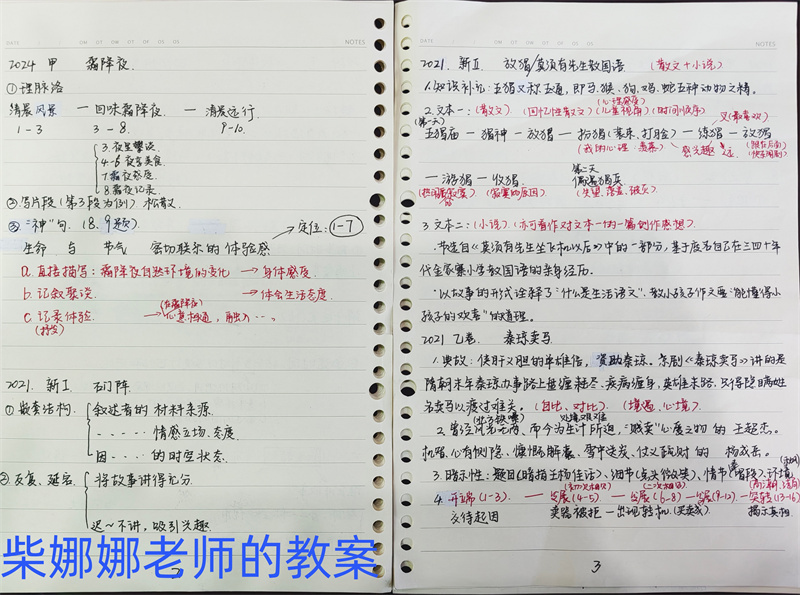 DATE
NOTES
2024 甲 霜降夜.
①理脉络
清晨风景 — 回味霜降夜 — 清晨远行
1-3 3-8. 9-10.
3.夜里攀谈
4-6 夜宵美食
7.霜夜感夜
8.霜夜记录
②写片段(第3段为例). 松散.
③"神"句. (8.9题).
→定位: 1-7
生命 与 节气 密切联系的体验感
a.直接描写: 霜降夜自然环境的变化 → 身体感受
b.记叙聚谈 → 体会生活态度
(在霜降夜)
c.记录体验. → 心意相通, 融入…。
2021. 新I. 石门阵
①嵌套结构. 叙述者的 材料来源.
…… 情感立场、态度
因…… 的时空状态.
②反复、延宕. 将故事讲得充分.
迟~不讲, 吸引兴趣.
柴娜娜老师的教案
DATE
NOTES
2021. 新II. 放猖/莫须有先生教国语. (散文+小说)
1.知识补充: 五猖又称五通, 即马、猴、狗、鸡、蛇五种动物之精.
(心理感受)
2.文本一: (散文). (回忆性散文) (儿童视角) (时间顺序)
(第一天)
五猖庙 — 猖神 — 放猖 — 扮猖 — 练猖 — 放猖
(我的心理: 羡慕)
第二天
— 游猖 — 收猖.
(失望、落寞、
3.文本二: (小说). (亦可看作对文本一的一篇创作感想).
·节选自《莫须有先生坐飞机以后》中的一部分, 基于废名自己在三四十年
代金家寨小学教国语的亲身经历.
·以故事的形式诠释了"什么是生活语文". 教小孩子作文要"能懂得小
孩子的欢喜"的道理.
2021 乙卷. 秦琼卖马
1.典故: 侠肝义胆的单雄信, 资助秦琼. 京剧《秦琼卖马》讲的是
隋朝末年秦琼办事路上盘缠耗尽、疾病缠身, 英雄末路, 只得
卖马以渡过难关. (自比、对比). (境遇、心境).
2.曾经风光无两、而今为生计所迫, "贱卖"心爱之物的 王超杰.
机智、心有恻隐、慷慨解囊、雪中送炭、仗义疏财的 杨成岳.
3.暗示性: 题目(暗指王杨佳话)、细节
4.开端(1-3). — 发展(4-5) — 发展(6-8) — 发展(9-12) — 突转(13-16)
交待起因 卖锅被拒 — 出现转机 揭示真相.
3